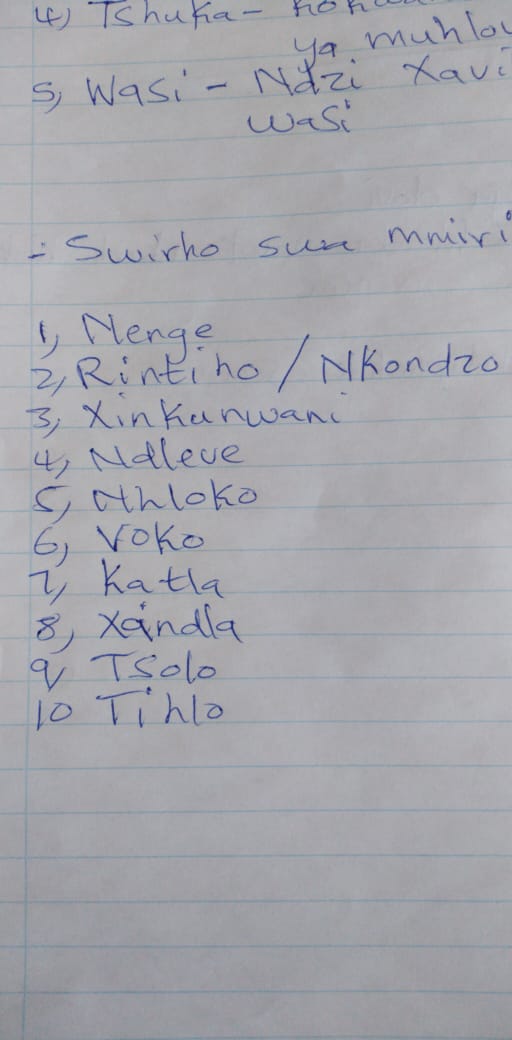 4) Tshuka -
ya
5, Wasi - Ndzi
wasi
- Swirho swa mmiri
1, Nenge
2, Rintiho / Nkondzo
3, Xinkunwani
4, Ndleve
5, Nhloko
6, Voko
7, Katla
8, Xandla
9, Tsolo
10 Tihlo